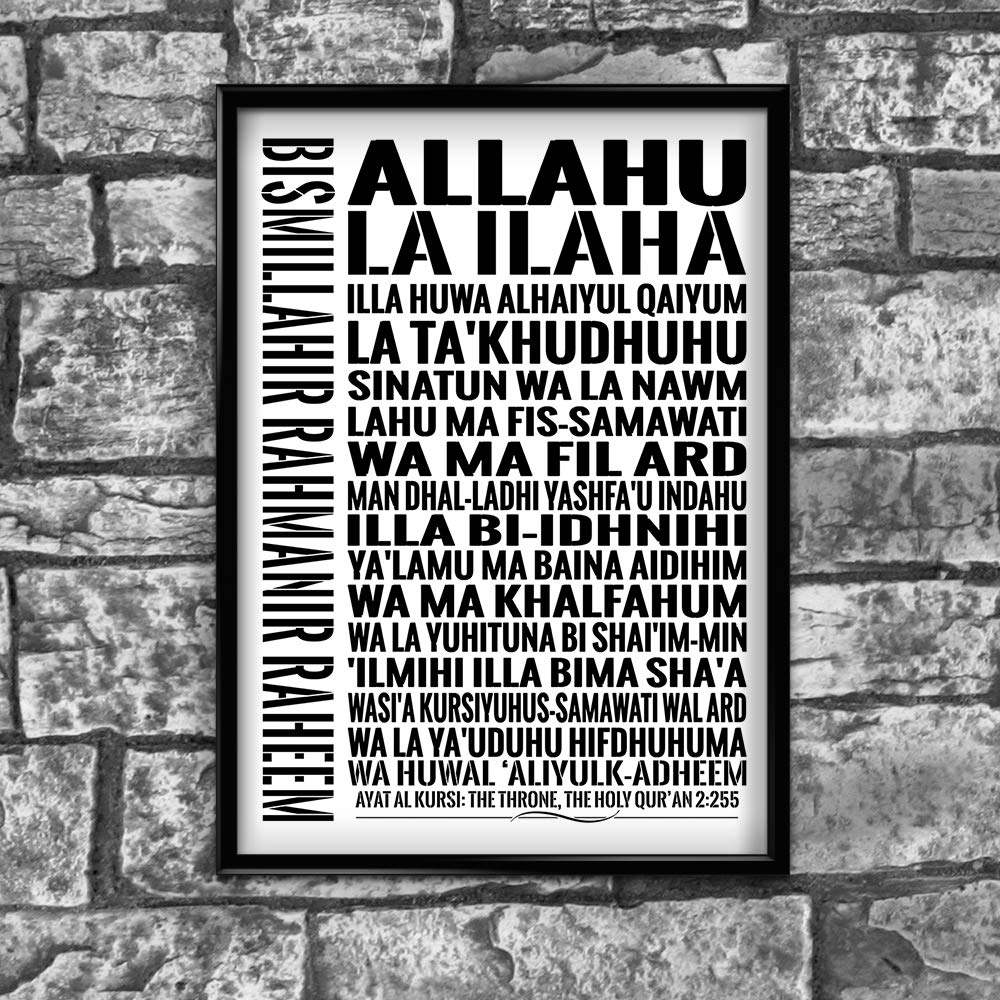 BISMILLAHIR RAHMANIR RAHEEM
ALLAHU
LA ILAHA
ILLA HUWA ALHAIYUL QAIYUM
LA TA'KHUDHUHU
SINATUN WA LA NAWM
LAHU MA FIS-SAMAWATI
WA MA FIL ARD
MAN DHAL-LADHI YASHFA'U INDAHU
ILLA BI-IDHNIHI
YA'LAMU MA BAINA AIDIHIM
WA MA KHALFAHUM
WA LA YUHITUNA BI SHAI'IM-MIN
'ILMIHI ILLA BIMA SHA'A
WASI'A KURSIYUHUS-SAMAWATI WAL ARD
WA LA YA'UDUHU HIFDHUHUMA
WA HUWAL ‘ALIYULK-ADHEEM
AYAT AL KURSI: THE THRONE, THE HOLY QUR’AN 2:255